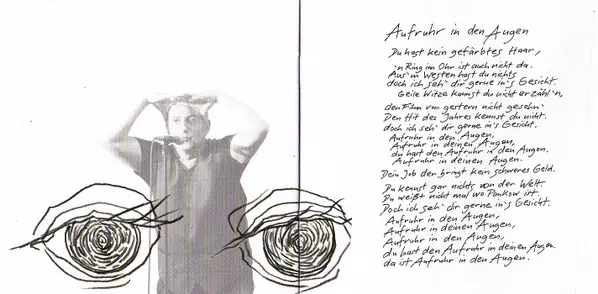 Aufruhr in den Augen
Du hast kein gefärbtes Haar,
'n Ring im Ohr ist auch nicht da.
Aus'm Westen hast du nichts
doch ich seh' dir gerne in's Gesicht.
Geile Witze kannst du nicht erzähl'n,
den Film von gestern nicht geseh'n
Den Hit des Jahres kennst du nicht.
doch ich seh' dir gerne in's Gesicht.
Aufruhr in den Augen,
Aufruhr in deinen Augen,
du hast den Aufruhr in den Augen.
Aufruhr in deinen Augen.
Dein Job der bringt kein schweres Geld.
Du kennst gar nichts von der Welt.
Du weißt nicht mal wo Pankow ist.
Doch ich seh' dir gerne in's Gesicht.
Aufruhr in den Augen,
Aufruhr in deinen Augen,
Aufruhr in den Augen,
du hast den Aufruhr in deinen Augen.
da ist Aufruhr in den Augen.